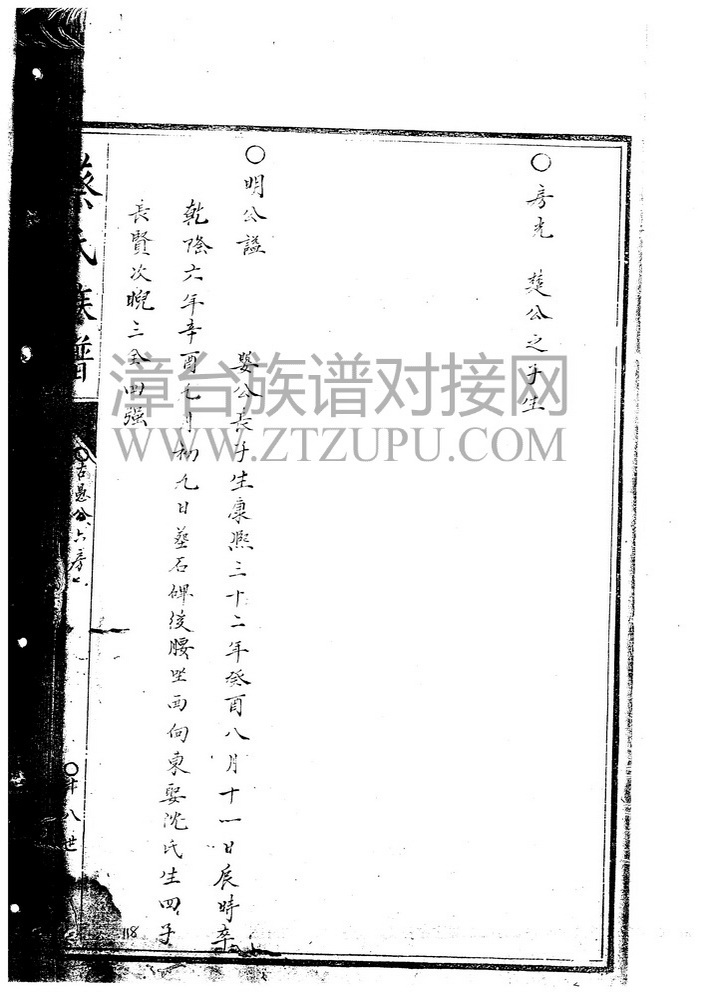 ○房光 楚公之子生
○明公謚 嬰公長子生康熙三十二年癸酉八月十一日辰時卒
乾隆六年辛酉九月初九日葬石碑後腰坐西向東娶沈氏生四子
長賢次晥三全四强
蔡氏族譜
○吉愚公六房
○廿八世
118
漳台族谱对接网
WWW.ZTZUPU.COM